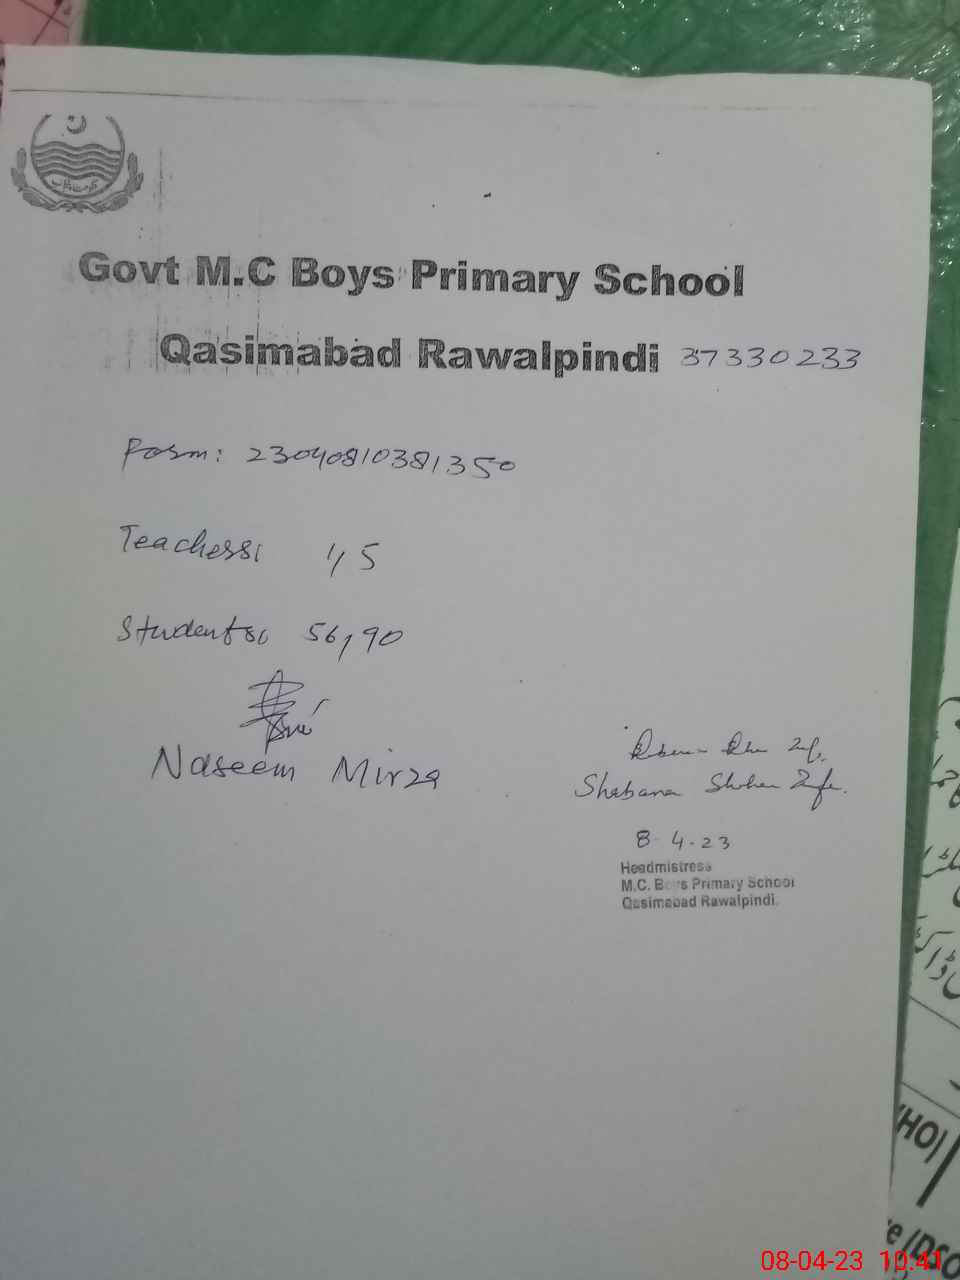 حکومت پنجاب
Govt M.C Boys Primary School
Qasimabad Rawalpindi 37330233
Form: 23040810381350
Teachers: 1, 5
Students: 56, 90
Naseem Mirza
Shabana
8-4-23
Headmistress
M.C. Boys Primary School
Qasimabad Rawalpindi.
IOH
e /DSO
08-04-23 10:41